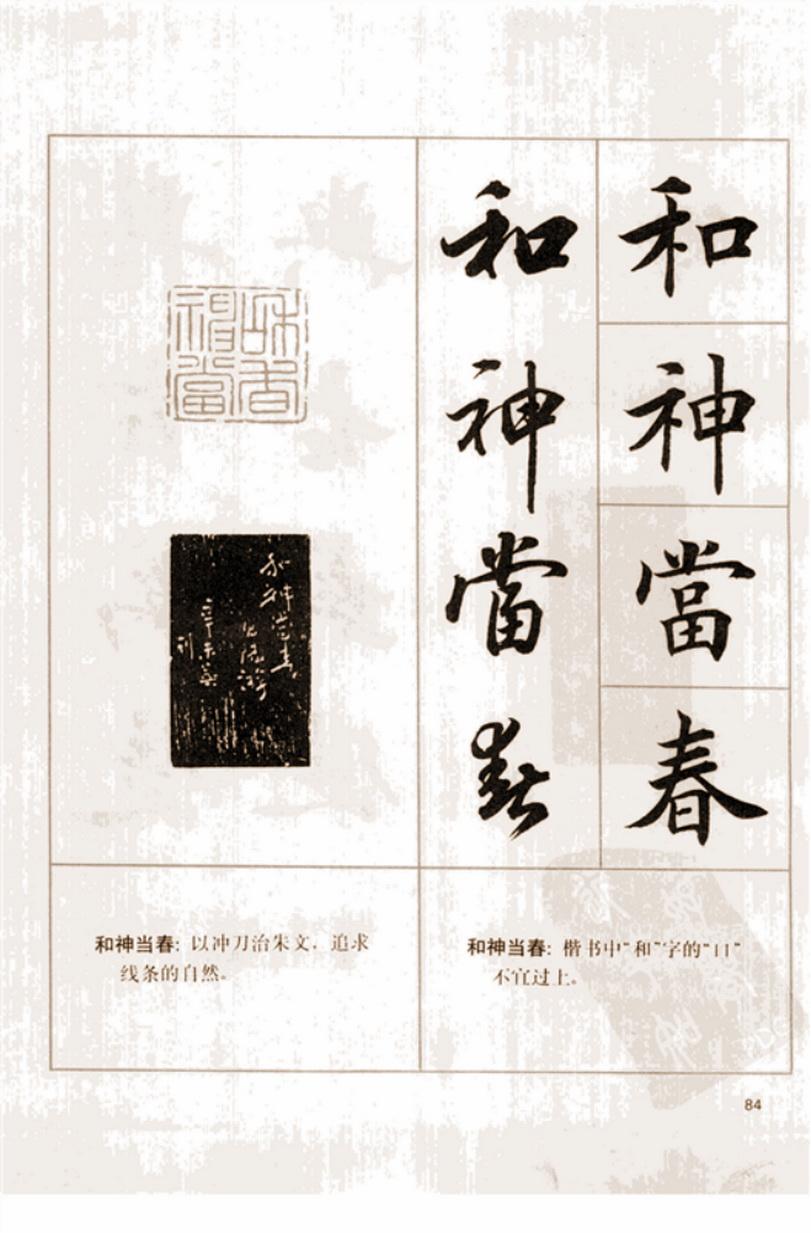 和神當春
和神當春
和神當春
和神当春：以冲刀治朱文，追求
线条的自然。
和神当春：楷书中“和”字的“口”
不宜过上。
84